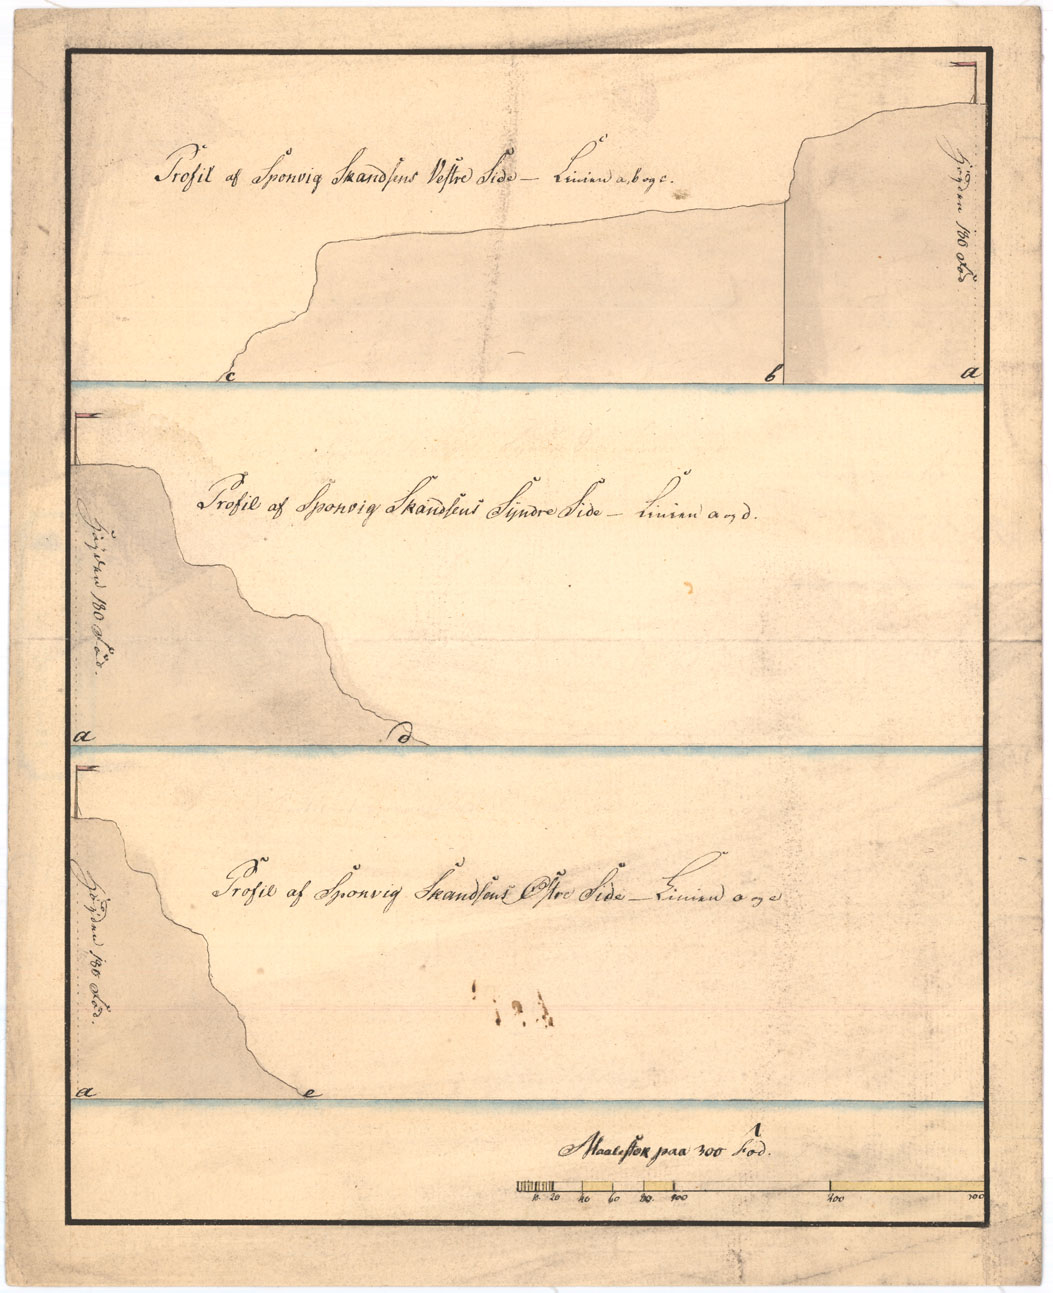 Profil af Sponvig Skandsens Vestre Side — Linien a, b og c.
Høyden 180 Fod
c
b
a
Profil af Sponvig Skandsens Syndre Side — Linien a og d.
Høyden 180 Fod.
a
d
Profil af Sponvig Skandsens Østre Side — Linien a og e
Høyden 180 Fod.
a
e
Maalestok paa 300 Fod.
10 20 40 60 80 100 200 300